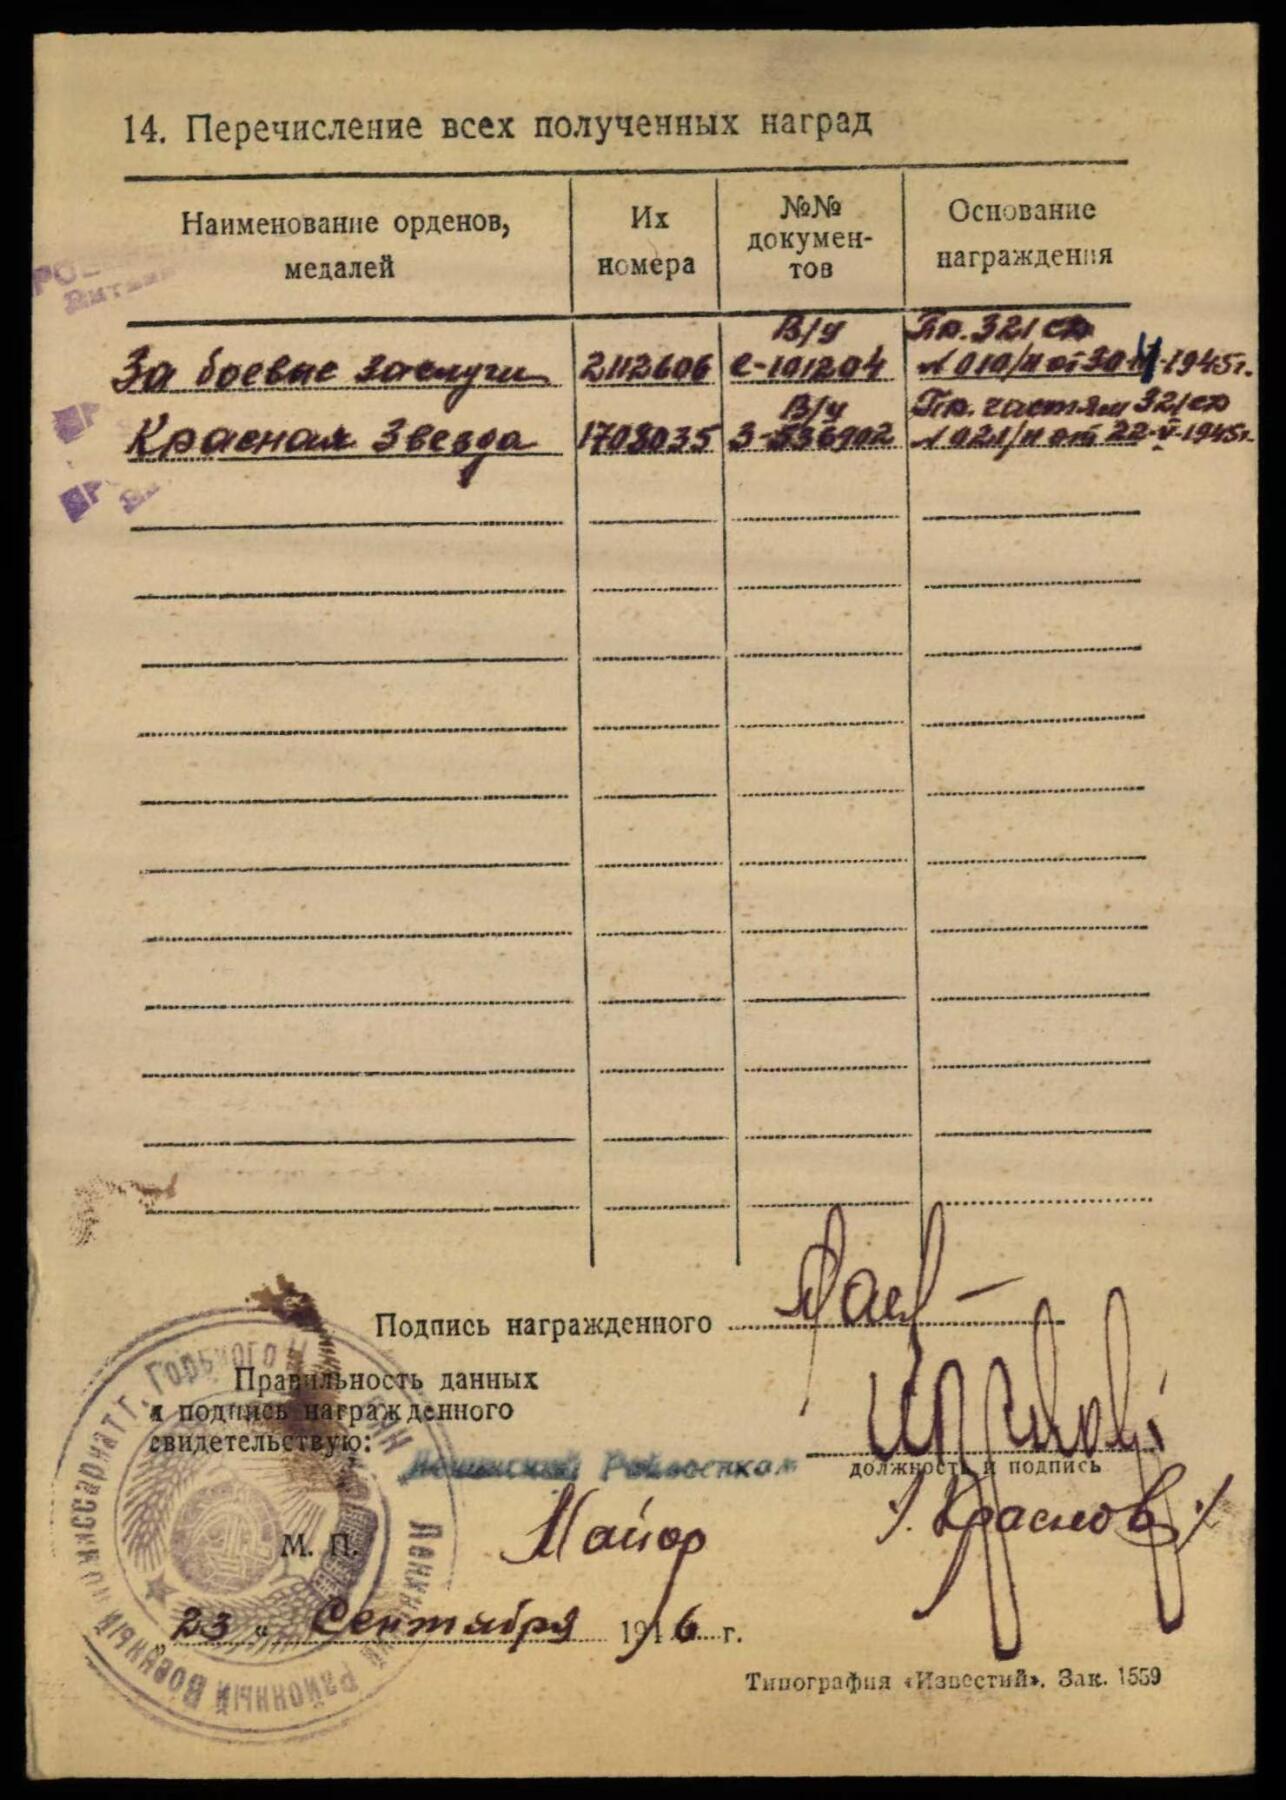 14. Перечисление всех полученных наград
Наименование орденов, медалей
Их номера
№№ докумен-
тов
Основание награждения
За боевые заслуги
2112606
В/у
е-101204
Пр. 321 сд
№ 010/н от 30 -1945г.
Красная Звезда
1708035
В/у
З-536902
Пр. частям 321 сд
№ 021/н от 22-V-1945г.
Подпись награжденного
Правильность данных
и подпись награжденного
свидетельствую:
Райвоенком
должность и подпись
Майор
/. Краснов /.
М. П.
„23“ Сентября 1946 г.
Районный Военный Комиссариат г. Горького
Типография «Известий». Зак. 1559